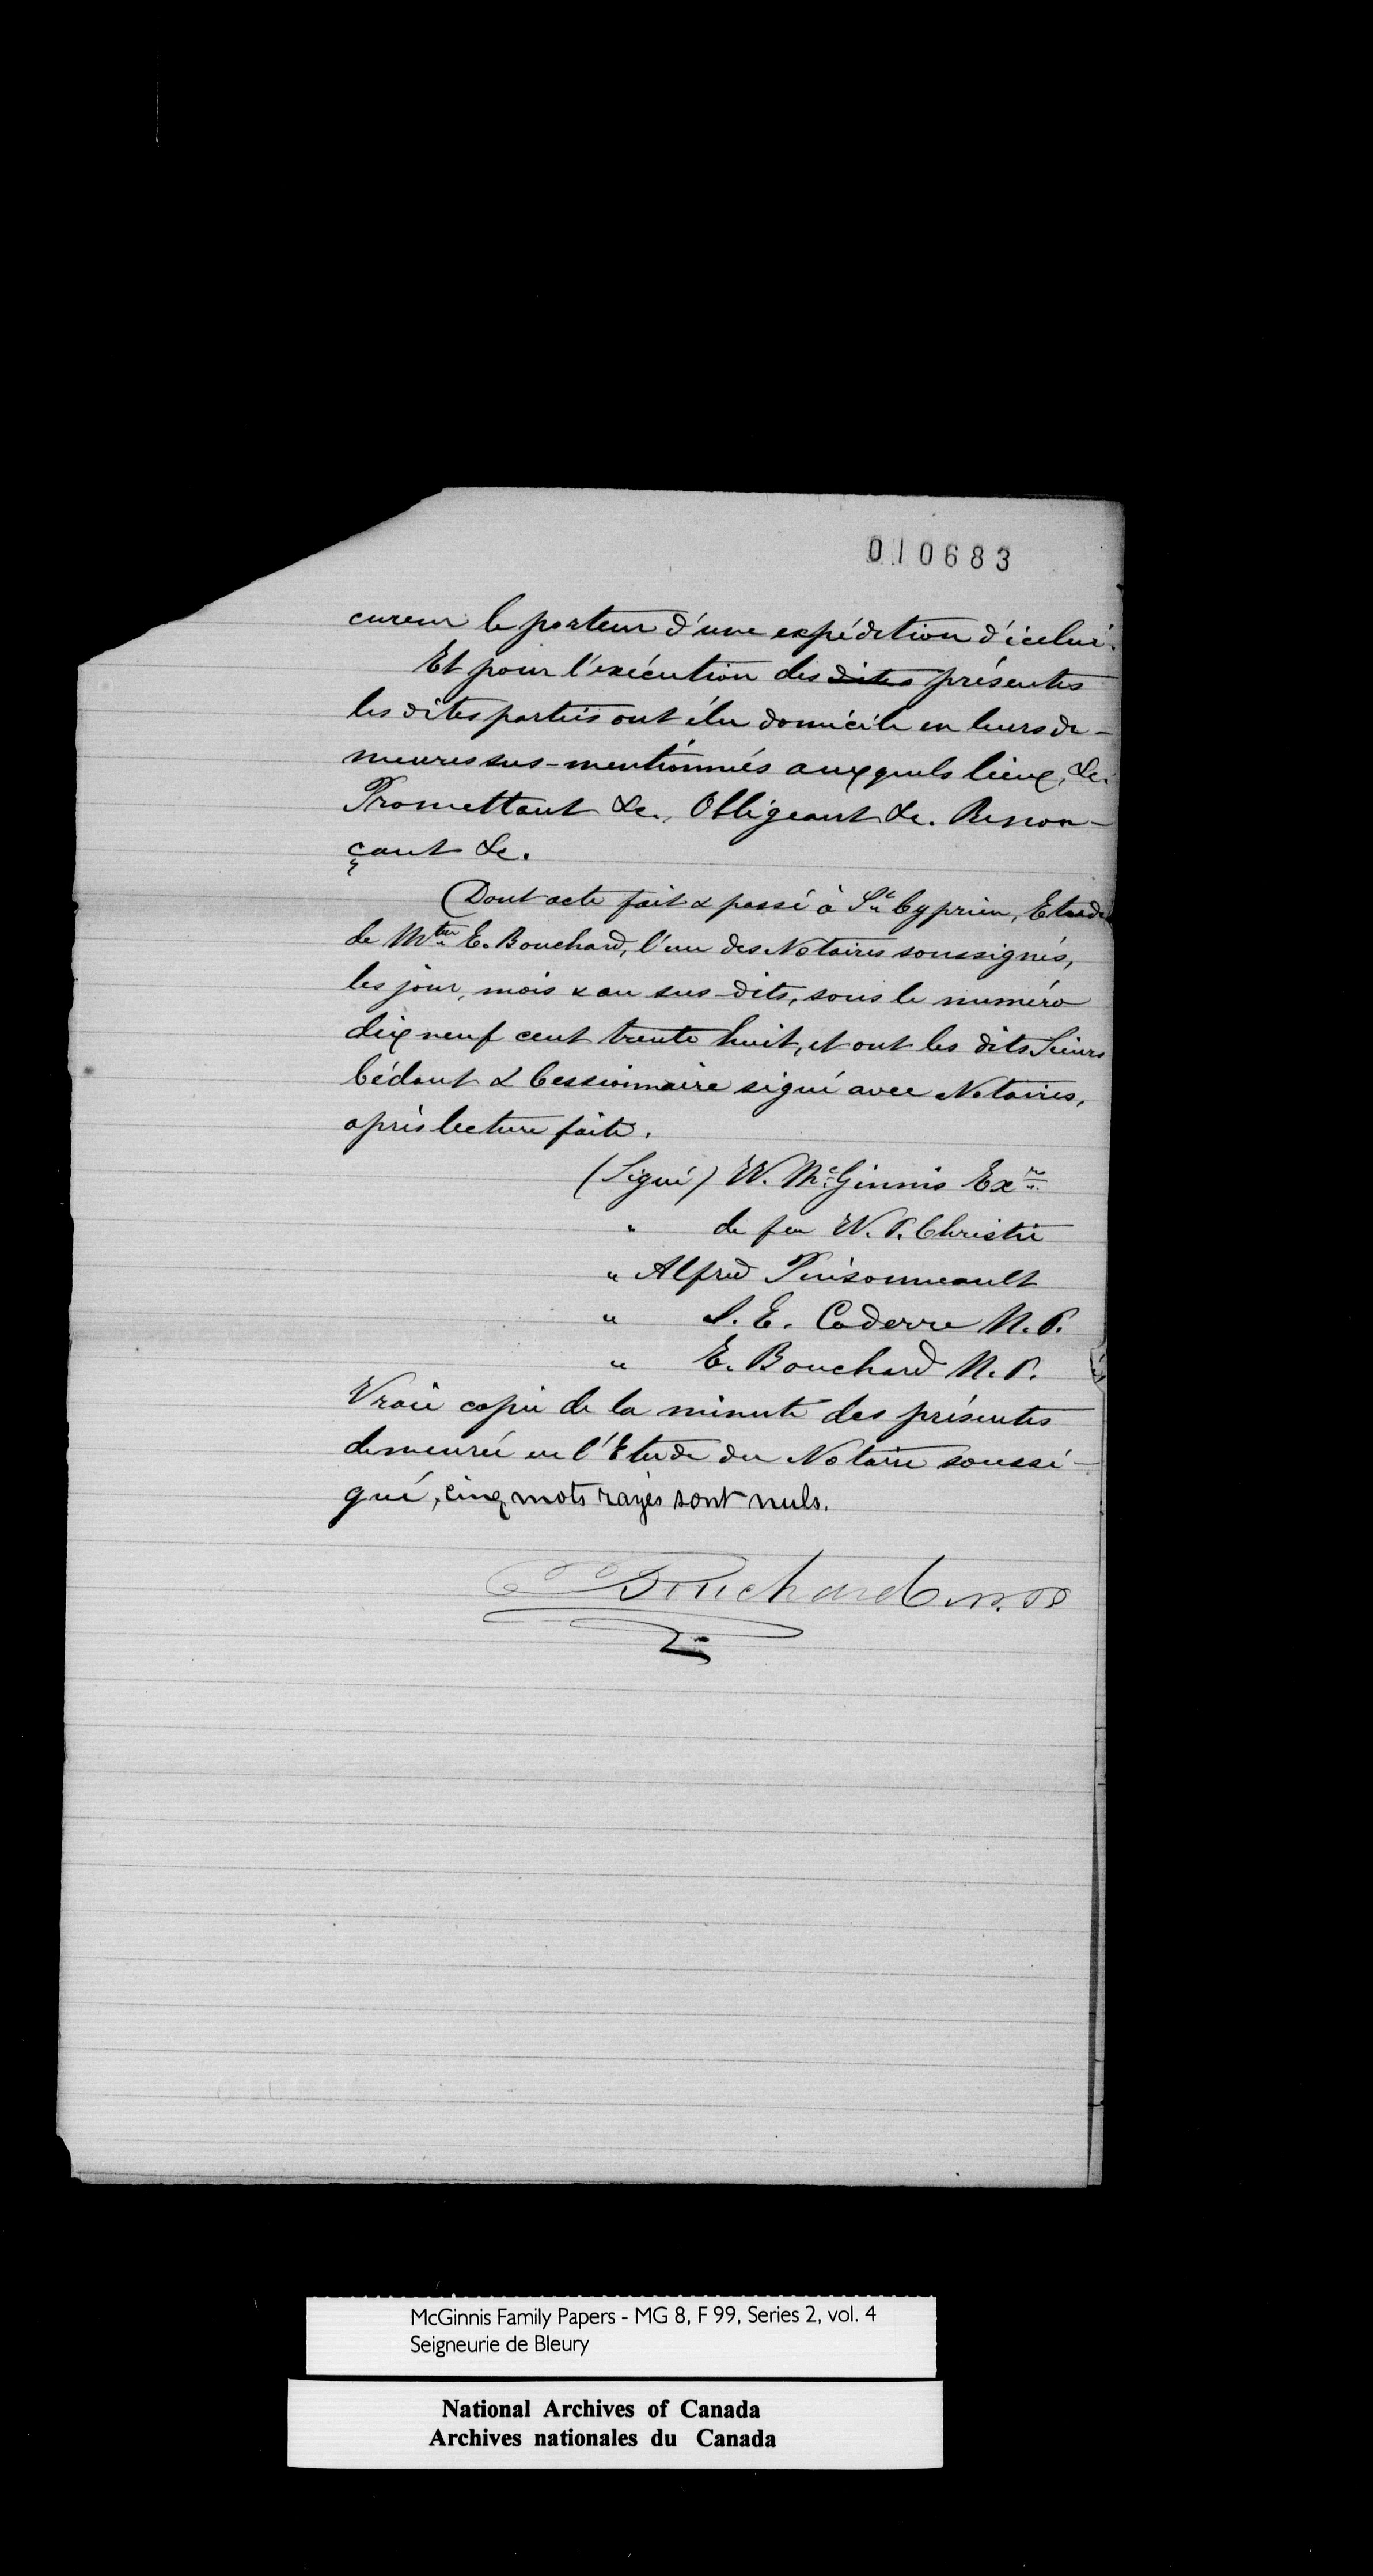 010683
cureur le porteur d'une expédition d'icelui.
Et pour l'exécution des dites présentes
les dites parties ont élu domicile en leurs de-
meures sus-mentionnés auxquels lieux, &c.
Promettant &c., Obligeant &c. Renon-
çant &c.
Dont acte fait & passé à St. Cyprien, Etude
de Mtre E. Bouchard, l'un des Notaires soussignés,
les jour, mois & an sus-dits, sous le numéro
dix neuf cent trente huit, et ont les dits Sieurs
Cédant & Cessionnaire signé avec Notaires,
après lecture faite.
(Signé) W. McGinnis Exr.
" de feu W. P. Christie
" Alfred Pinsonneault
" S. E. Coderre N. P.
" E. Bouchard N. P.
Vraie copie de la minute des présentes
demeurée en l'Etude du Notaire soussi-
gné, cinq mots rayés sont nuls.
E Bouchard N.P
McGinnis Family Papers - MG 8, F 99, Series 2, vol. 4
Seigneurie de Bleury
National Archives of Canada
Archives nationales du Canada